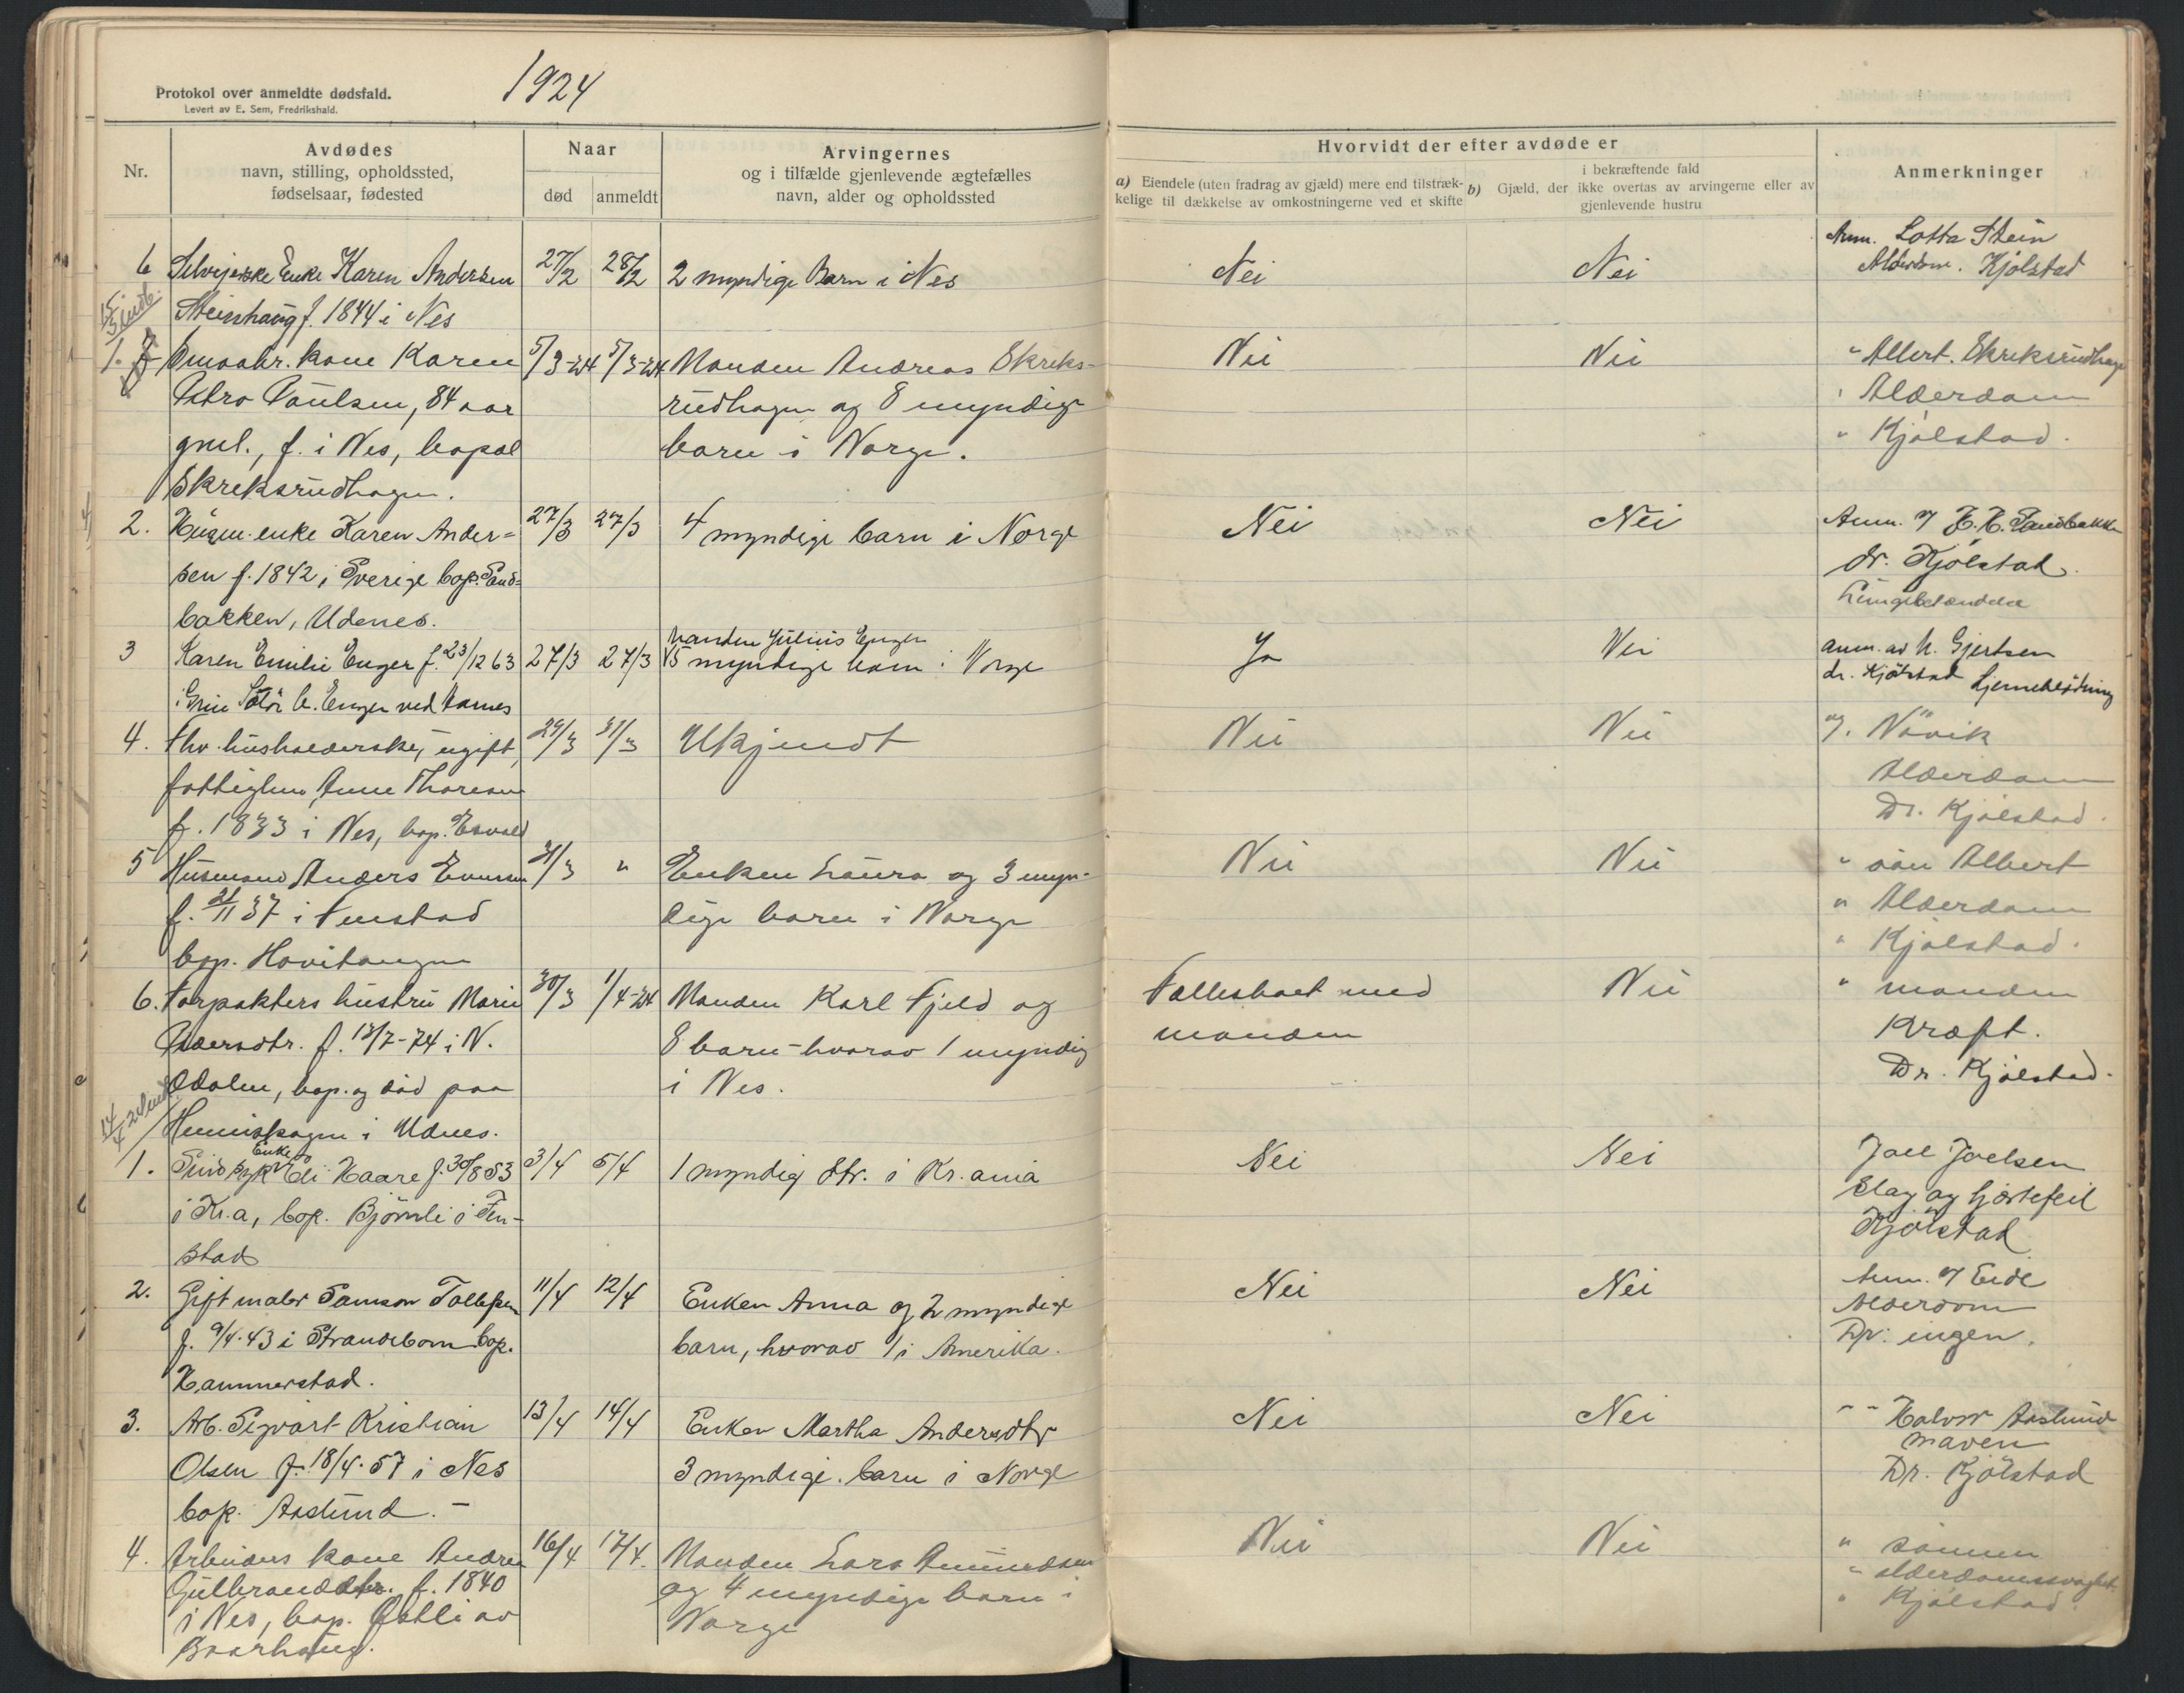 1924
Protokol over anmeldte dødsfald.
Levert av E. Sem, Fredrikshald.
Nr.
Avdødes
navn, stilling, opholdssted,
fødselsaar, fødested
Naar
død
anmeldt
Arvingernes
og i tilfælde gjenlevende ægtefælles
navn, alder og opholdssted
Hvorvidt der efter avdøde er
a) Eiendele (uten fradrag av gjæld) mere end tilstræk-
kelige til dækkelse av omkostningerne ved et skifte
i bekræftende fald
b) Gjæld, der ikke overtas av arvingerne eller av
gjenlevende hustru
Anmerkninger
6 Selveierske Enke Karen Andersen 27/2 28/2 2 myndige Barn i Nes Nei Nei Anm. Lotta Stein
Steinshaug f. 1844 i Nes
Alderdom. Kjølstad
1. kone Karen 5/3-24 5/3-24 Manden Andreas Skreks- Nei Nei " Albert. Skreksrudhagen
Petra Paulsen, 84 aar rudhagen og 8 myndige " Alderdom
gml., f. i Nes, bopæl barn i Norge. " Kjølstad.
Skreksrudhagen.
2. Husm. enke Karen Ander= 27/3 27/3 4 myndige barn i Norge Nei Nei Anm. af H. Sandbakken
sen f. 1842 i Sverige bop. Sand= dr. Kjølstad.
bakken, Udenes. Lungebetændelse
Manden Julius Enger
3 Karen Emilie Enger f. 23/12 63 27/3 27/3 5 myndige barn i Norge Ja Nei anm. av N. Gjertsen
i Grue Solør b. Enger ved Aarnes dr. Kjølstad Hjerneblødning
4. Fhv. husholderske, ugift, 29/3 31/3 Ukjendt Nei Nei Nävik
fattiglem Anne Thoresen Alderdom
f. 1833 i Nes, bop. Esvald Dr. Kjølstad.
5 Husmand Anders Evensen 31/3 " Enken Laura og 3 myn- Nei Nei " søn Albert
f. 21/11 37 i Fenstad dige barn i Norge " Alderdom
bop. " Kjølstad.
6. Forpakters hustru Marie 30/3 1/4-24 Manden Karl Fjeld og Fællesboet med Nei " manden
Pedersdtr. f. 13/7-74 i N. 8 barn - hvorav 1 myndig manden Kræft.
Odalen, bop. og død paa i Nes. Dr. Kjølstad.
i Udnes.
1. Enke Haare f. 30/8 53 3/4 5/4 1 myndig dtr. i Kr.ania Nei Nei Joel Joelsen
i Kr.a, bop. Bjørnli i Fen- Slag og hjertefeil
stad Kjølstad
2. Gift maler Samson Tollefsen 11/4 12/4 Enken Anna og 2 myndige Nei Nei Anm. af Eide
f. 9/4-43 i Strandebarm bop. barn, hvorav 1 i Amerika. Alderdom
Hammerstad. Dr. ingen.
3. Arb. Sigvart Kristian 13/4 14/4 Enken Martha Andersdtr Nei Nei " " Halvor Aaslund
Olsen f. 18/4-57 i Nes 3 myndige barn i Norge maven
bop. Aaslund. - Dr. Kjølstad
4. Arbeiders kone Andrea 16/4 17/4. Manden Lars Amundsen Nei Nei " sønnen
Gulbrandsdtr. f. 1840 og 4 myndige barn i " alderdomssvaghet.
i Nes, bop. Østli av Norge " Kjølstad.
Baarhaug.